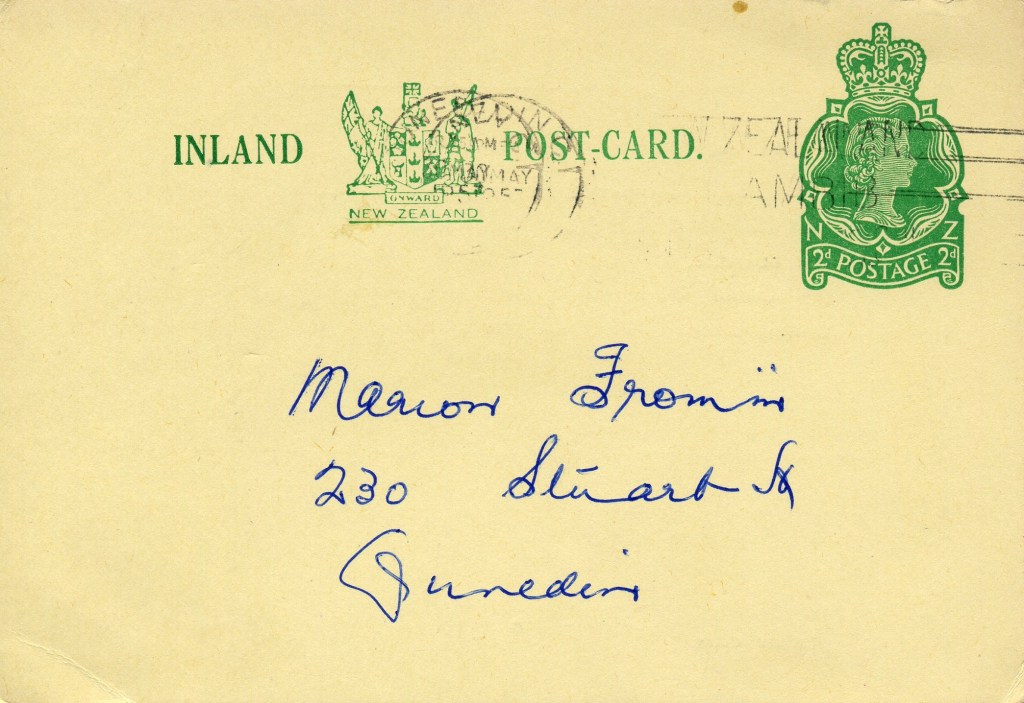 INLAND POST-CARD.
ONWARD
NEW ZEALAND
N Z
2d POSTAGE 2d
Marion Fromm
230 Stuart St
Dunedin